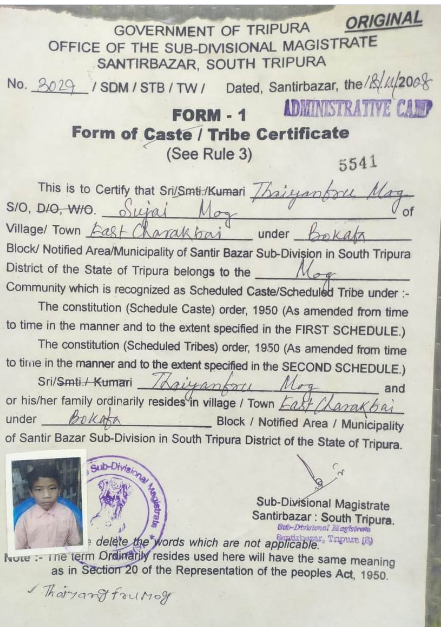 ORIGINAL
GOVERNMENT OF TRIPURA
OFFICE OF THE SUB-DIVISIONAL MAGISTRATE
SANTIRBAZAR, SOUTH TRIPURA
No. 3029 / SDM / STB / TW / Dated, Santirbazar, the 18/11/2008
ADMINISTRATIVE CAMP
FORM - 1
Form of Caste / Tribe Certificate
(See Rule 3)
5541
This is to Certify that Sri/Smti./Kumari Thaiyanfru Mog
S/O, D/O, W/O. Sujai Mog of
Village/ Town East Charakbai under Bokafa
Block/ Notified Area/Municipality of Santir Bazar Sub-Division in South Tripura
District of the State of Tripura belongs to the Mog
Community which is recognized as Scheduled Caste/Scheduled Tribe under :-
The constitution (Schedule Caste) order, 1950 (As amended from time
to time in the manner and to the extent specified in the FIRST SCHEDULE.)
The constitution (Scheduled Tribes) order, 1950 (As amended from time
to time in the manner and to the extent specified in the SECOND SCHEDULE.)
Sri/Smti./ Kumari Thaiyanfru Mog and
or his/her family ordinarily resides in village / Town East Charakbai
under Bokafa Block / Notified Area / Municipality
of Santir Bazar Sub-Division in South Tripura District of the State of Tripura.
Sub-Divisional Magistrate
Sub-Divisional Magistrate
Santirbazar : South Tripura.
Sub-Divisional Magistrate
Santirbazar, Tripura (S)
delete the words which are not applicable.
Note :- The term Ordinarily resides used here will have the same meaning
as in Section 20 of the Representation of the peoples Act, 1950.